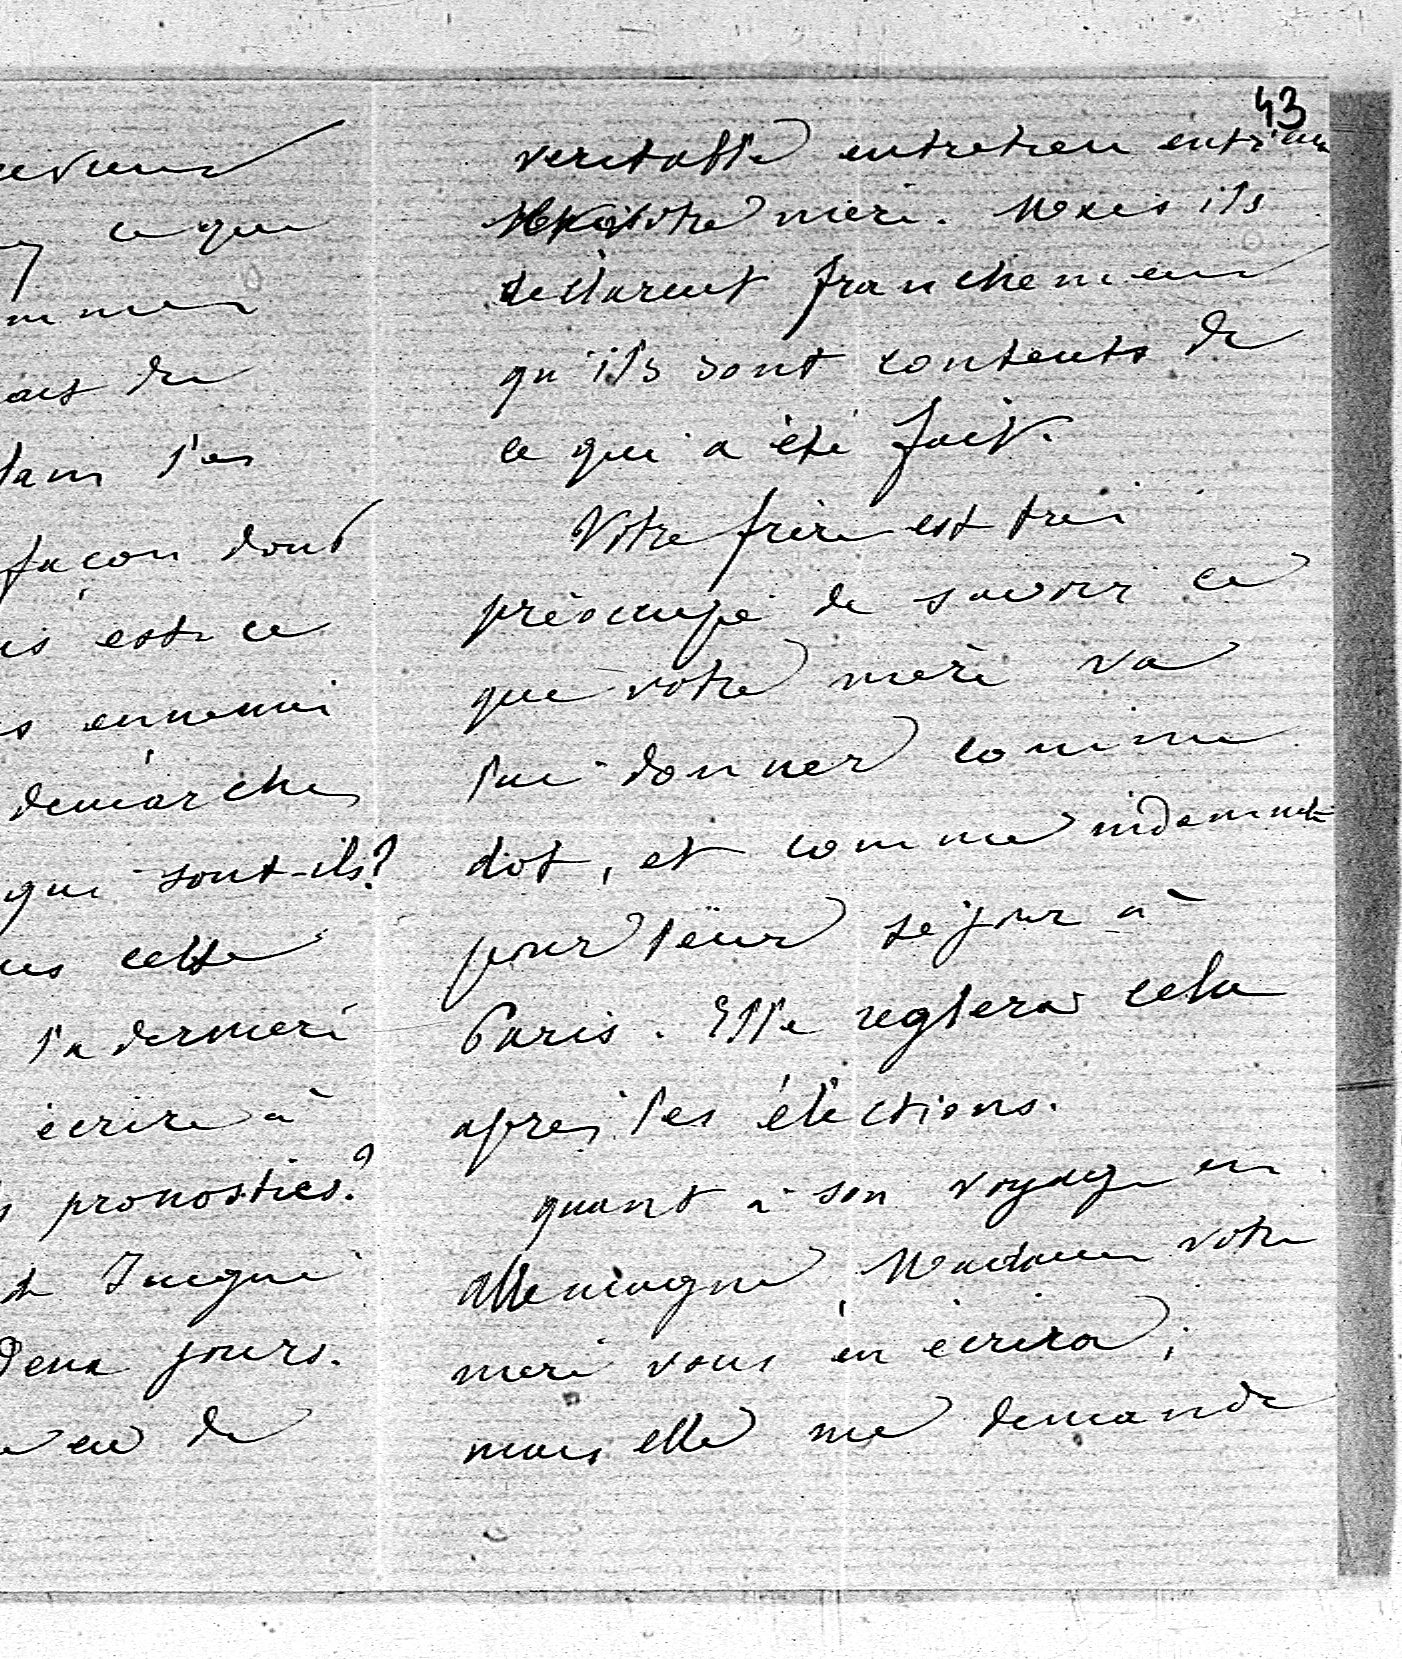 ce que
dans l'es
façon dont
est ce
ennemi
demarches
qui sont-ils?
cette
la derniere
ecrire à
pronostics?
Deux jours.
eu de
43
veritable entretien
votre mère. Mais ils
declarent franchement
qu'ils sont contents de
ce qui a été fait.
Votre frère est très
préoccupé de savoir ce
que votre mère va
lui donner comme
dot, et comme indemnité
pour leur séjour à
Paris. Elle reglera cela
après les élections.
quant à son voyage en
Allemagne, Madame votre
mere vous en écrira;
mais elle me demande